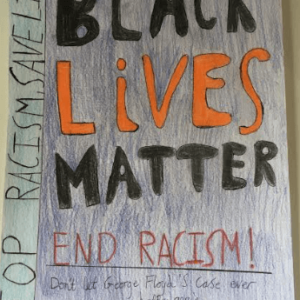 BLACK
LiVES
MATTER
END RACISM!
Don't let George Floyd's case ever
OP RACISM, SAVE L